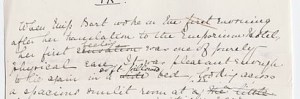 When Miss Bart woke on the first morning
after her translation to the Emporium Hotel,
her first feeling was one of purely
physical ease. It was pleasant enough
to lie again in a soft-pillowed bed, looking across
a spacious sunlit room at a